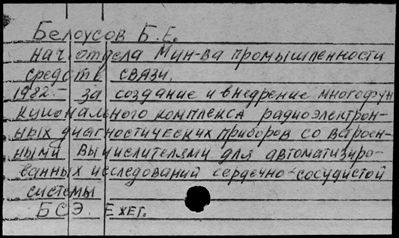 Белоусов Б.Е.
нач. отдела Мин-ва промышленности
средств связи.
1982: – за создание и внедрение многофун
кционального комплекса радиоэлектрон-
ных диагностических приборов со встроен-
ными вычислителями для автоматизиро-
ванных исследований сердечно-сосудистой
системы
БСЭ. Ежег.